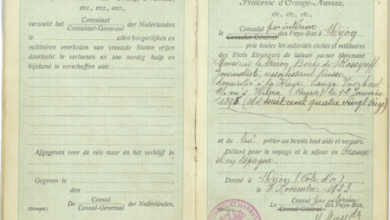 enz., enz., enz.
verzoekt het Consulaat
Consulaat-Generaal der Nederlanden
te
allen burgerlijken en
militairen overheden van vreemde Staten vrijen
doortocht te verleenen en zoo noodig hulp en
bijstand te verschaffen aan
Afgegeven voor de reis naar en het verblijf in
Gegeven te
De Consul
Consul-Generaal der Nederlanden,
Princesse d'Orange-Nassau,
etc., etc., etc.
Consulat par intérim
Consulat-Général des Pays-Bas à Dijon
prie toutes les autorités civiles et militaires
des Etats Etrangers de laisser passer librement
Monsieur le Baron Boris de
Journaliste, russe
domicilié à la Haye, Lange
né à Wilna (Russie) le 12 Janvier
et lui prêter au besoin tout aide et vigueur.
Délivré pour le voyage et le séjour en France
et en Espagne
Donné à Dijon (Côte d'or)
le Novembre 1923
Le Consul par intérim
Consul-Général des Pays-Bas,